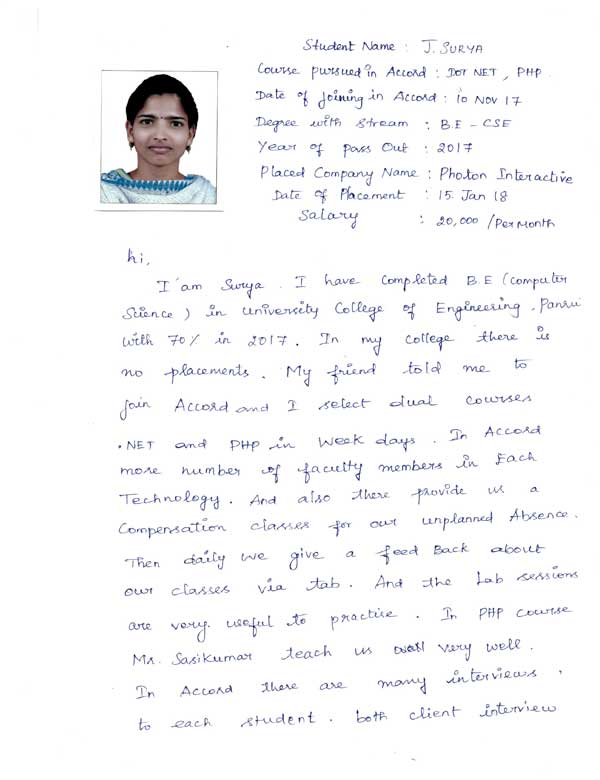 Student Name : J. SURYA
Course pursued in Accord : DOT NET, PHP
Date of Joining in Accord : 10 Nov 17
Degree with stream : B.E - CSE
Year of Pass Out : 2017
Placed Company Name : Photon Interactive
Date of Placement : 15 Jan 18
Salary : 20,000 /Per Month
hi,
I'am Surya. I have completed B.E (computer
Science) in University College of Engineering, Panru
with 70% in 2017. In my college there is
no placements. My friend told me to
join Accord and I select dual courses
.NET and PHP in Week days. In Accord
more number of faculty members in Each
Technology. And also there provide us a
Compensation classes for our unplanned Absence.
Then daily we give a feed Back about
our classes via tab. And the Lab sessions
are very useful to practise. In PHP course
Mr. Sasikumar teach us very well.
In Accord there are many interviews,
to each student. both client interview